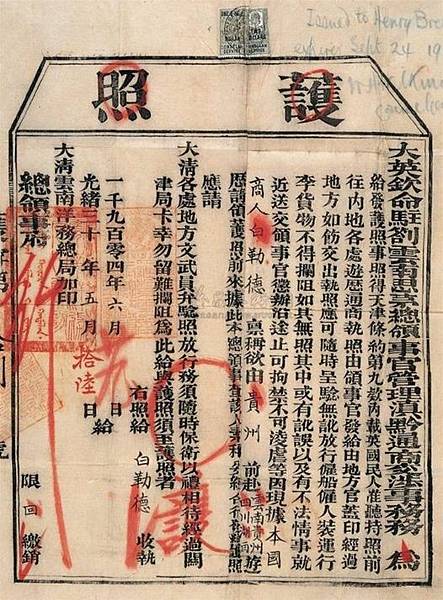 Issued to Henry Bro
expires Sept 24 19
護照
大英欽命駐劄雲南思茅總領事官管理滇黔通商交涉事務 為
給發護照事照得天津條約第九款內載英國民人准聽持照前
往內地各處遊歷通商執照由領事官發給由地方官蓋印經過
地方如飭交出執照應可隨時呈驗無訛放行僱船僱人裝運行
李貨物不得攔阻如其無照其中或有訛誤以及有不法情事就
近送交領事官懲辦沿途止可拘禁不可凌虐等因現據本國
商人白勒德 稟稱欲由貴州 前赴雲南貴州四川湖南遊
歷請領護照前來據此本總領事
應請
大清各處地方文武員弁驗照放行務須隨時保衛以禮相待經過關
津局卡幸勿留難攔阻爲此給與護照須至護照者
右照給 白勒德 收執
一千九百零四年六月 日給
光緒三十年五月拾陸日
大清雲南洋務總局加印
總領事府
限 回繳銷